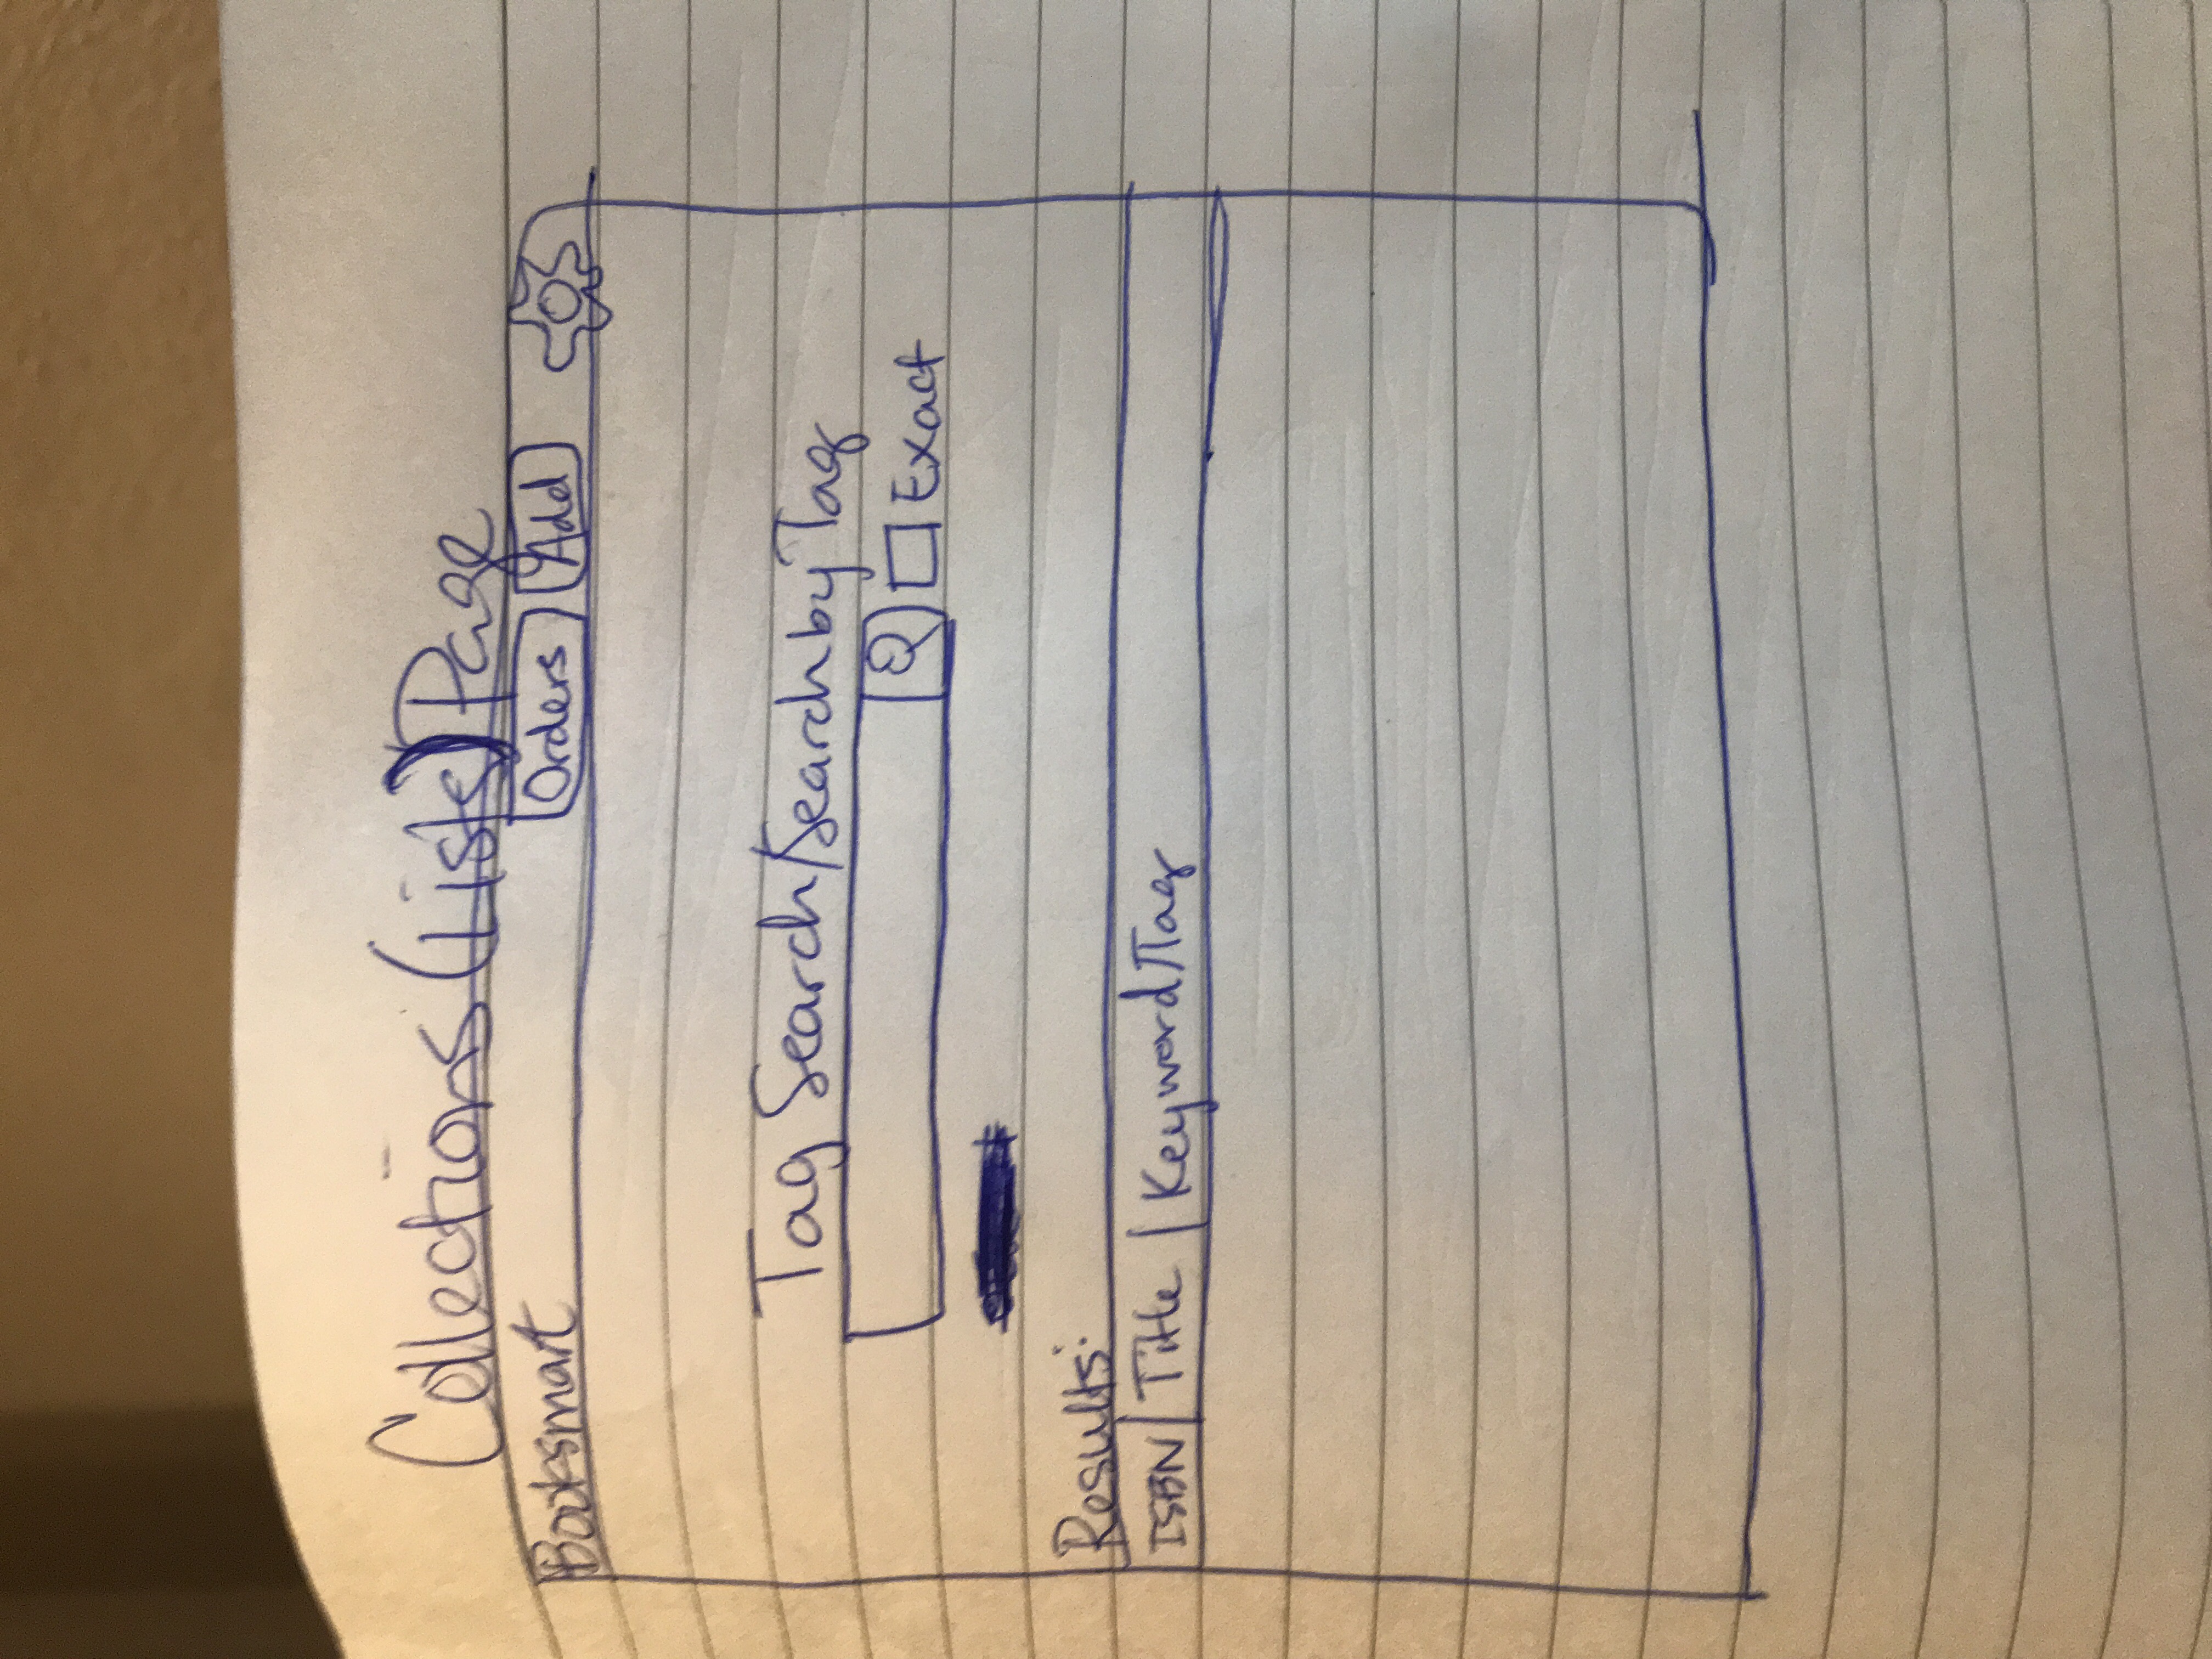 Collections (Lists) Page
Booksmart Orders Add
Tag Search/Search by Tag
Exact
Results:
ISBN | Title | Keyword/Tag